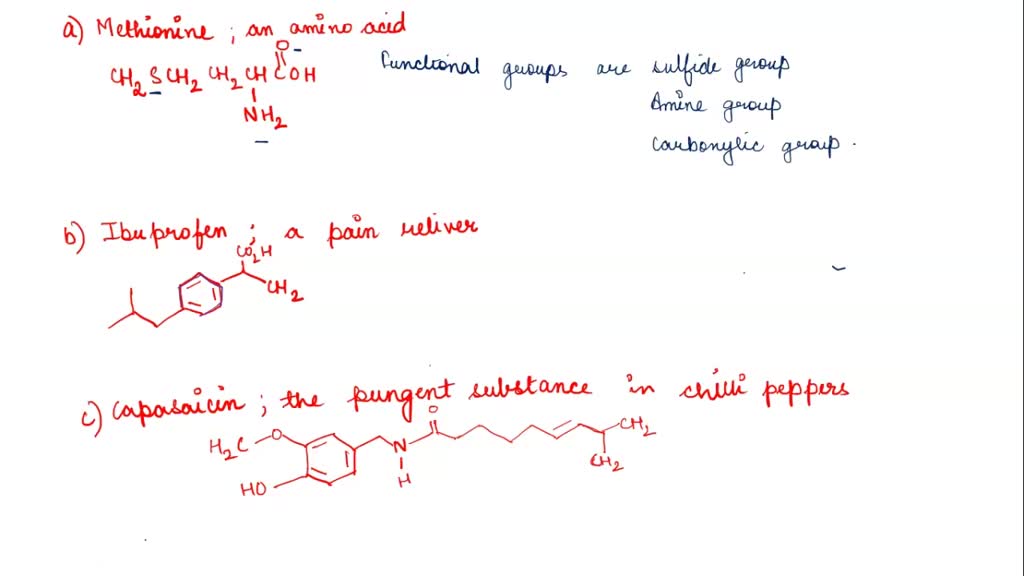 a) Methionine ; an amino acid
O
CH2SCH2 CH2CH COH
NH2
Functional groups are sulfide group
Amine group
Carbonylic group .
b) Ibuprofen ; a pain reliver
CO2H
CH2
c) Capasaicin ; the pungent substance in chilli peppers
O
H2C O
N
H
HO
CH2
CH2